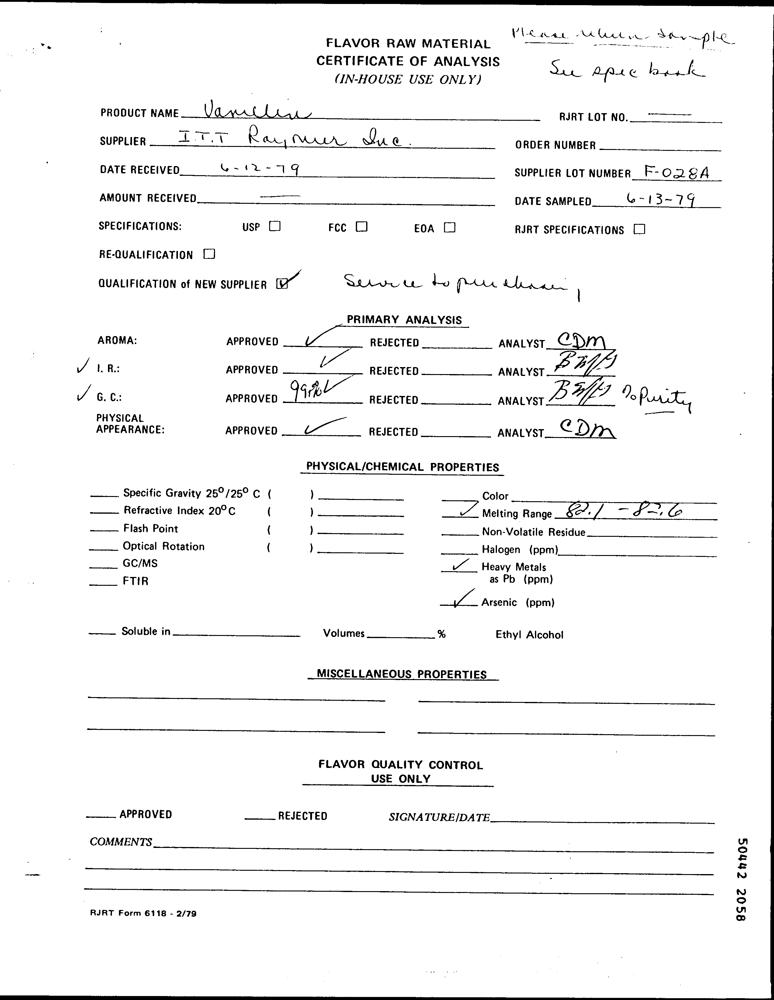 Please when sample
See spec book
FLAVOR RAW MATERIAL
CERTIFICATE OF ANALYSIS
(IN-HOUSE USE ONLY)
PRODUCT NAME Vanillin RJRT LOT NO.
SUPPLIER I.T.T Inc. ORDER NUMBER
DATE RECEIVED 6-12-79 SUPPLIER LOT NUMBER F-028A
AMOUNT RECEIVED DATE SAMPLED 6-13-79
SPECIFICATIONS: USP ☐ FCC ☐ EOA ☐ RJRT SPECIFICATIONS ☐
RE-QUALIFICATION ☐
QUALIFICATION of NEW SUPPLIER ☑ Service to purchasing
PRIMARY ANALYSIS
AROMA: APPROVED ✓ REJECTED ANALYST CDM
✓ I. R.: APPROVED ✓ REJECTED ANALYST
✓ G. C.: APPROVED ✓ REJECTED ANALYST % Purity
PHYSICAL
APPEARANCE: APPROVED ✓ REJECTED ANALYST CDM
PHYSICAL/CHEMICAL PROPERTIES
Specific Gravity 25°/25° C ( ) Color
Refractive Index 20°C ( ) ✓ Melting Range 82.1 - 82.6
Flash Point ( ) Non-Volatile Residue
Optical Rotation ( ) Halogen (ppm)
GC/MS ✓ Heavy Metals
FTIR as Pb (ppm)
✓ Arsenic (ppm)
Soluble in Volumes % Ethyl Alcohol
MISCELLANEOUS PROPERTIES
FLAVOR QUALITY CONTROL
USE ONLY
APPROVED REJECTED SIGNATURE/DATE
COMMENTS
RJRT Form 6118 - 2/79
50442 2058